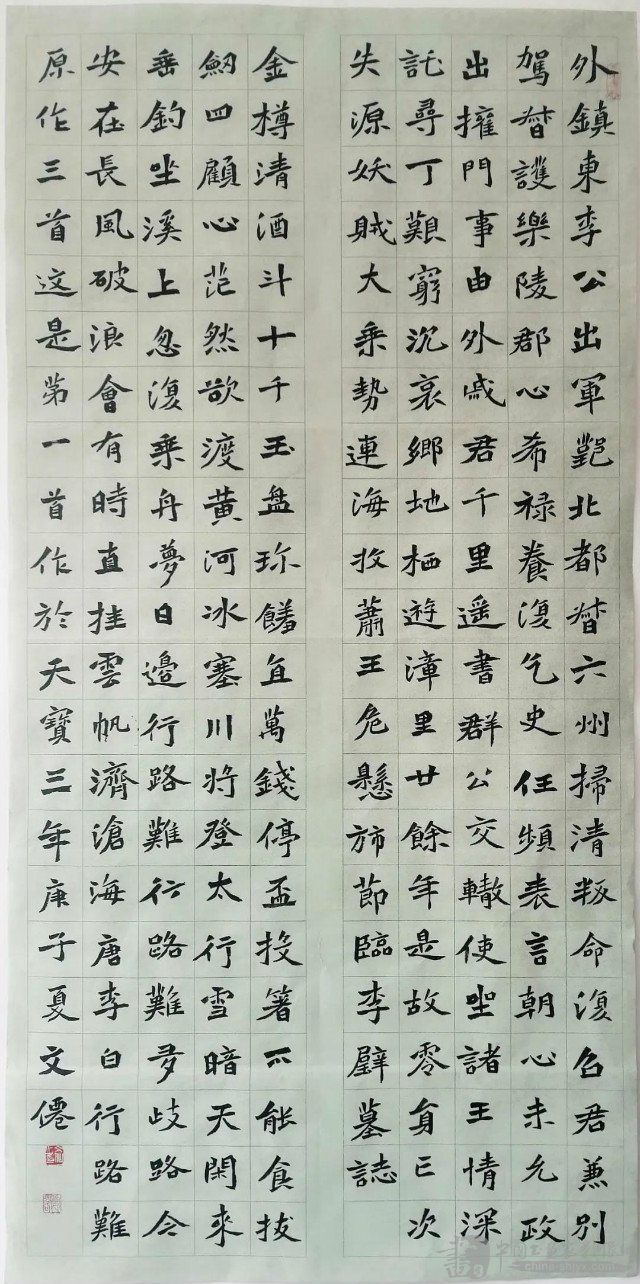 外鎮東李公出軍鄴北都督六州掃清叛命復召君兼別
駕督護樂陵郡心希祿養復乞史任頻表言朝心未允政
出擁門事由外戚君千里遥書群公交轍使坐諸王情深
託尋丁艱窮沉哀鄉地栖遊漳里廿餘年是故零身已次
失源妖賊大乘勢連海牧蕭王危懸斾節臨李璧墓誌
金樽清酒斗十千玉盤珎饈直萬錢停盃投箸不能食拔
劒四顧心茫然欲渡黃河冰塞川將登太行雪暗天閑來
垂釣坐溪上忽復乘舟夢日邊行路難行路難多歧路今
安在長風破浪會有時直挂雲帆濟滄海唐李白行路難
原作三首这是第一首作於天寶三年庚子夏文僊